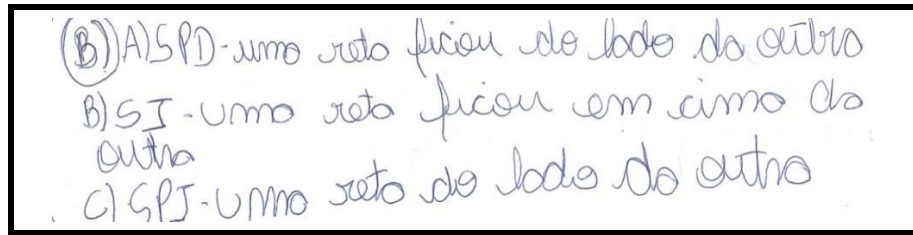 (B)) A) SPD - uma reta ficou do lado da outra
B) SI - Uma reta ficou em cima da
outra
C) SPI - Uma reta do lado da outra